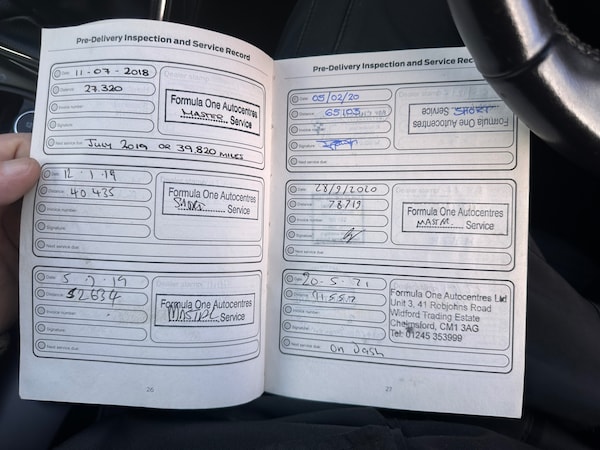 Pre-Delivery Inspection and Service Record
Date 11-07-2018
Distance 27.320
Invoice number
Signature
Next service due July 2019 OR 39,820 MILES
Formula One Autocentres
MASTER Service
Date 12-1-19
Distance 40.435
Invoice number
Signature
Next service due
Formula One Autocentres
SHORT Service
Date 5-7-19
Distance 52634
Invoice number
Signature
Next service due
Formula One Autocentres
Service
26
Pre-Delivery Inspection and Service Rec
Date 05/02/20
Distance 65103
Invoice number
Signature
Next service due
Formula One Autocentres
SHORT Service
Date 28/9/2020
Distance 78719
Invoice number
Signature
Next service due
Formula One Autocentres
Service
Date 20-5-21
Distance
Invoice number
Signature
Next service due on Dash
Formula One Autocentres Ltd
Unit 3, 41 Robjohns Road
Widford Trading Estate
Chelmsford, CM1 3AG
Tel: 01245 353999
27